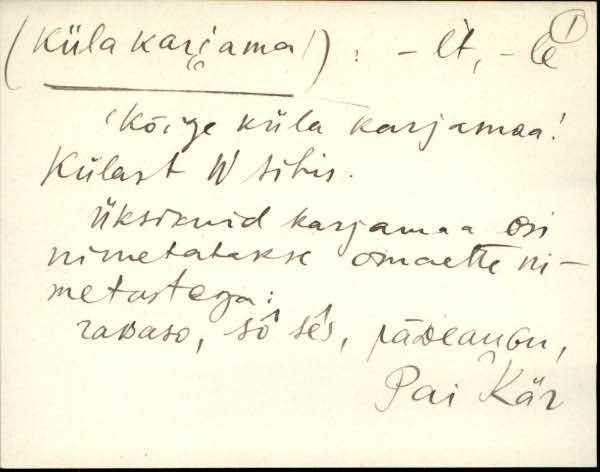 (Küla karjama) : – lt, – le 1
'Kõige küla karjamaa'.
Külast W sihis.
Üksikuid karjamaa osi
nimetatakse omaette ni-
metustega:
raʙaso, sô sês, päᴅeauɢu,
Pai Kär